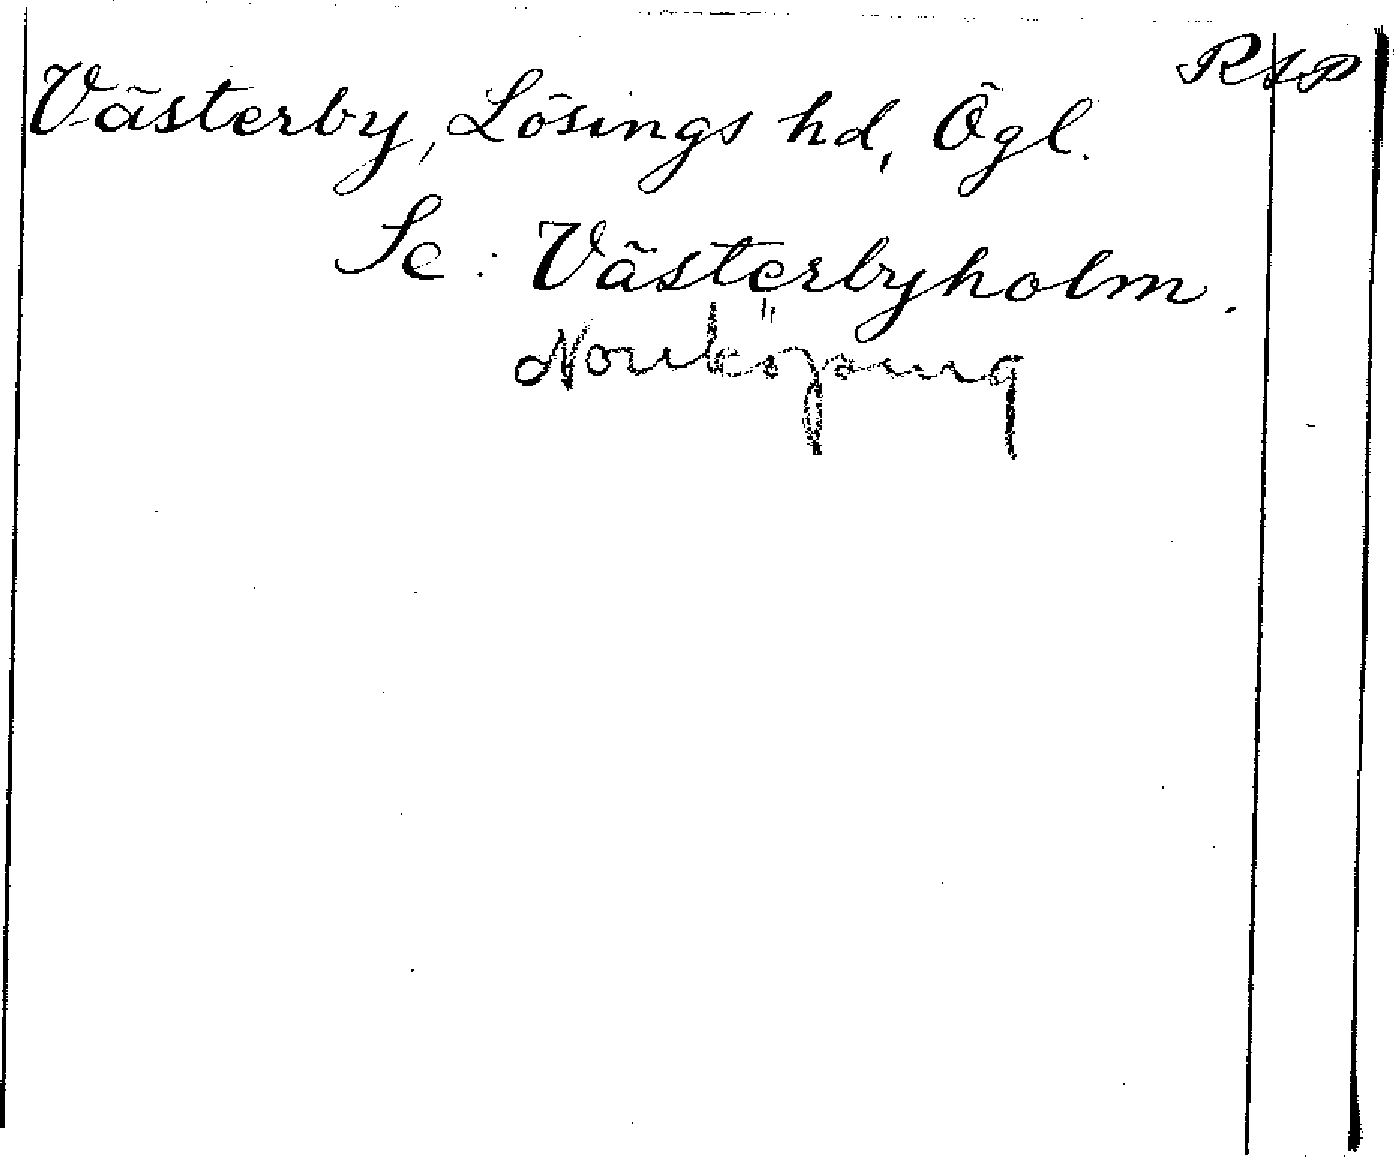 RAP
Västerby, Lösings hd, Ögl.
Se: Västerbyholm.
Norrköping